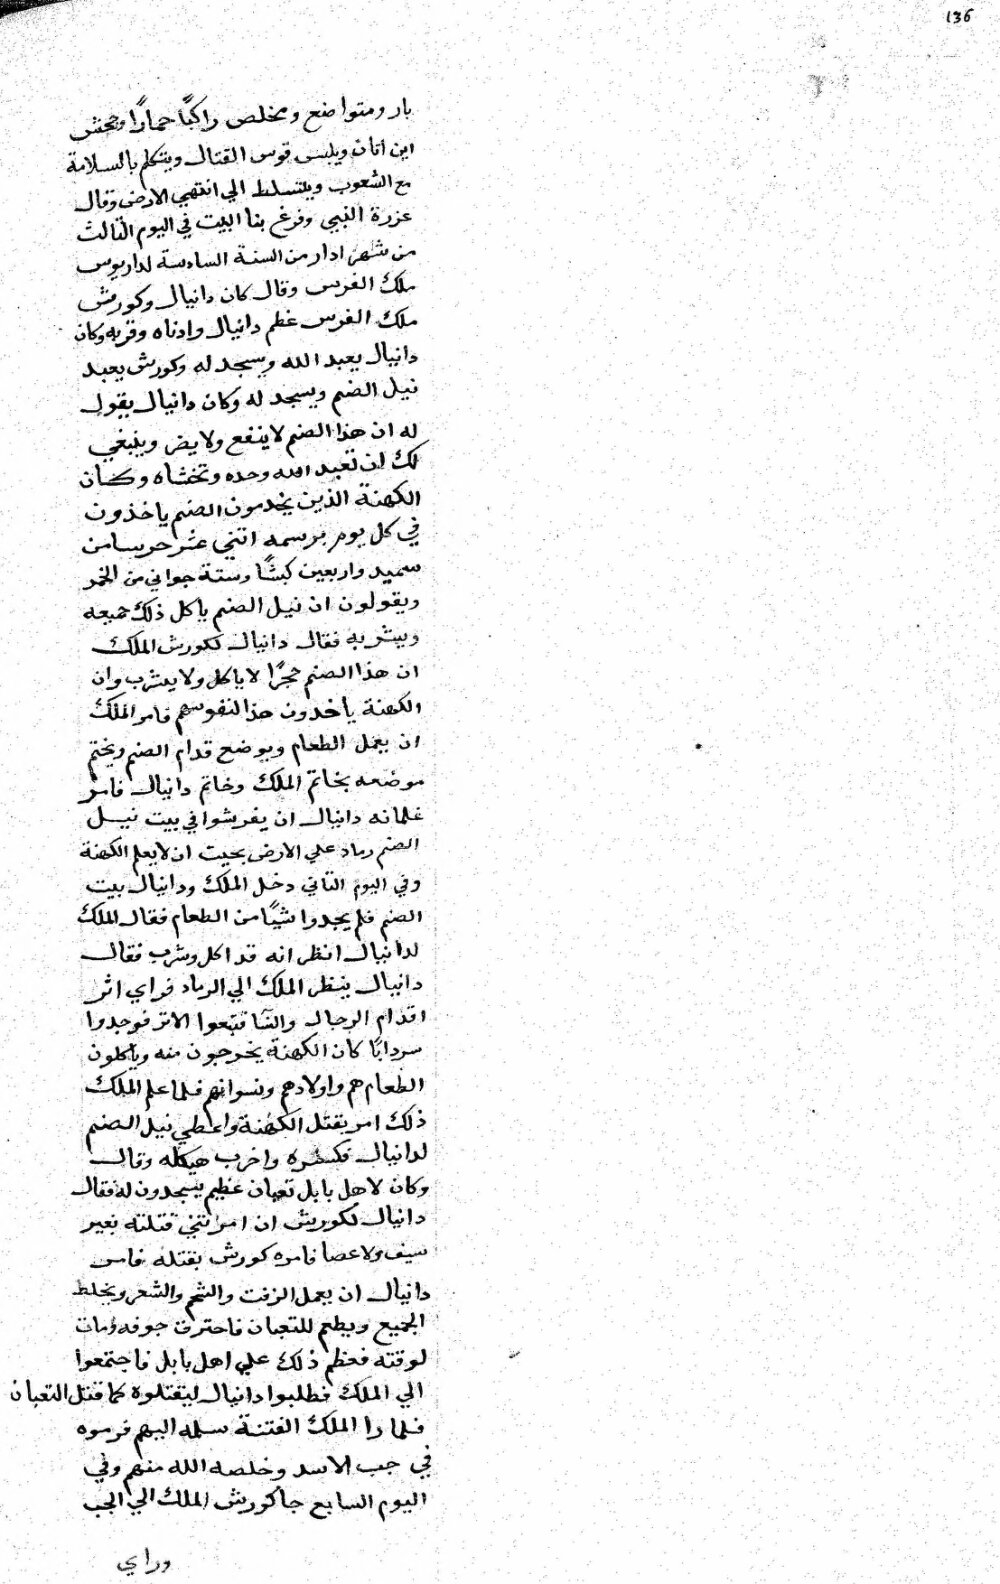 136
بار ومتواضع ومخلص راكبًا حمارًا وجحش
ابن اتان ويلبس قوس القتال ويتكلم بالسلامة
مع الشعوب ويتسلط الي انتهي الارض وقال
عزرة النبي وفرغ بنا البيت في اليوم الثالث
من شهر ادار من السنة السادسة لداريوس
ملك الفرس وقال كان دانيال وكورش
ملك الفرس عظم دانيال وادناه وقربه وكان
دانيال يعبد الله ويسجد له وكورش يعبد
نيل الصنم ويسجد له وكان دانيال يقول
له ان هذا الصنم لا ينفع ولا يضر وينبغي
لك ان تعبد الله وحده وتخشاه وكان
الكهنة الذين يخدمون الصنم ياخذون
في كل يوم برسمه اتني عشر حرسا من
سميد واربعين كبشًا وستة جواني من الخمر
ويقولون ان نيل الصنم ياكل ذلك جميعه
ويشربه فقال دانيال لكورش الملك
ان هذا الصنم حجرًا لا ياكل ولا يشرب وان
الكهنة ياخدون هذا لنفوسهم فامر الملك
ان يعمل الطعام ويوضع قدام الصنم ويختم
موضعه بخاتم الملك وخاتم دانيال فامر
غلمانه دانيال ان يفرشوا في بيت نيل
الصنم رماد علي الارض بحيت ان لا يعلم الكهنة
وفي اليوم التاني دخل الملك ودانيال بيت
الصنم فلم يجدوا شيًا من الطعام فقال الملك
لدانيال انظر انه قد اكل وشرب فقال
دانيال ينظر الملك الي الرماد فراي اثر
اقدام الرجال والنسا فتبعوا الاتر فوجدوا
سردابًا كان الكهنة يخرجون منه وياكلون
الطعام هم واولادهم ونسوانهم فلما علم الملك
ذلك امر بقتل الكهنة واعطي نيل الصنم
لدانيال فكسره واخرب هيكله وقال
وكان لاهل بابل تعبان عظيم يسجدون له فقال
دانيال لكورش ان امرتني قتلته بغير
سيف ولا عصا فامره كورش بقتله فامر
دانيال ان يعمل الزفت والشحم والشعر ويخلط
الجميع ويطعم للتعبان فاحترق جوفه ومات
لوقته فعظم ذلك علي اهل بابل فاجتمعوا
الي الملك فطلبوا دانيال ليقتلوه كما قتل التعبان
فلما را الملك الفتنة سلمه اليهم فرموه
في جب الاسد وخلصه الله منهم وفي
اليوم السابع جا كورش الملك الي الجب
وراي